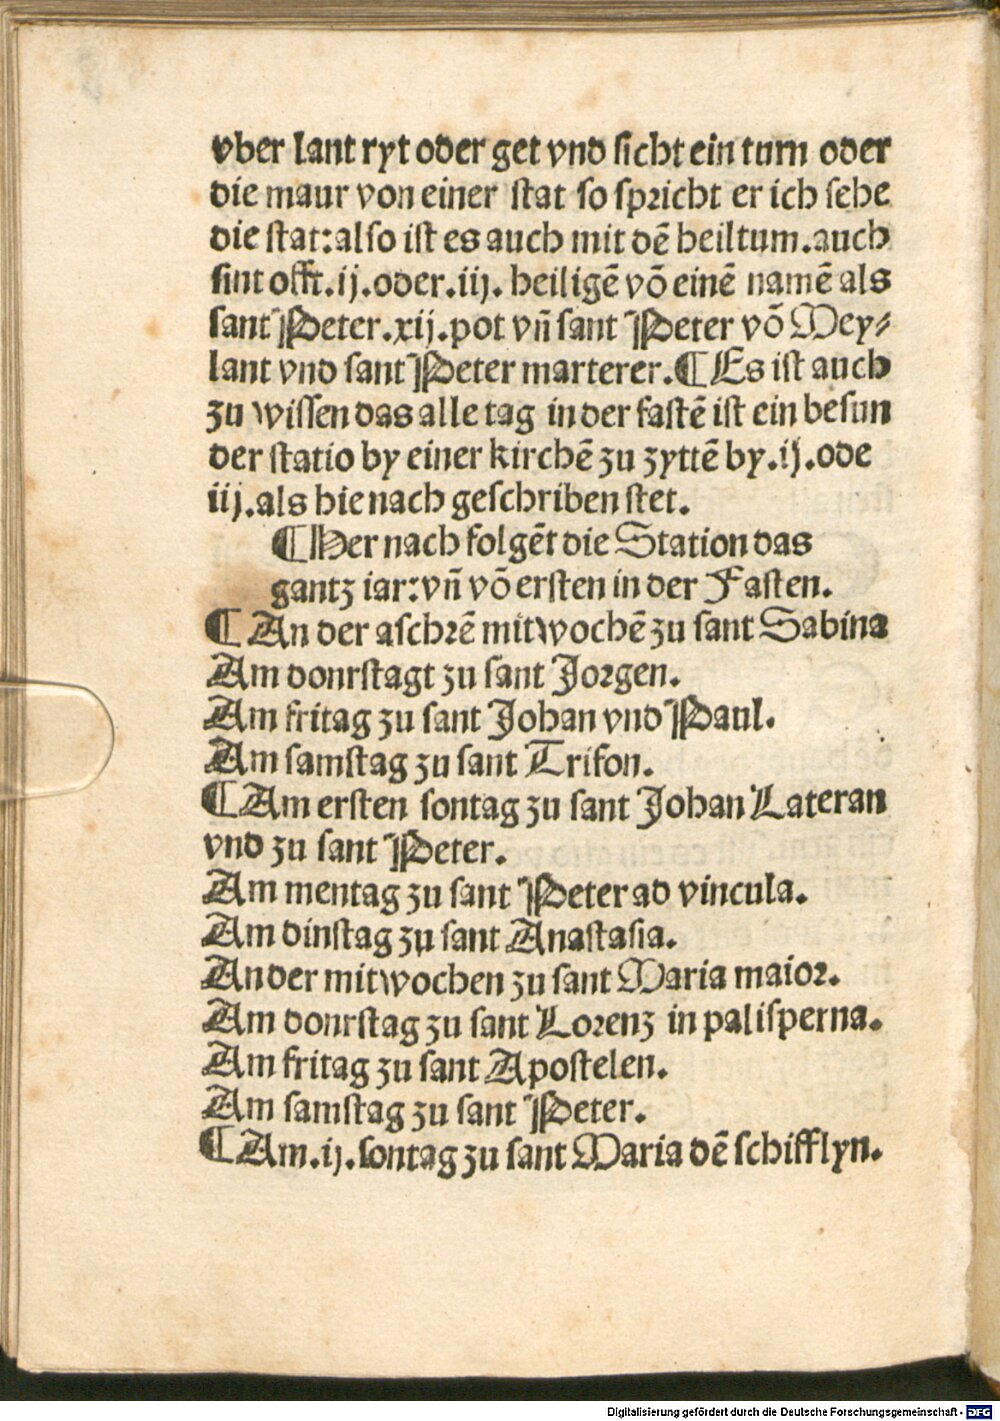 vber lant ryt oder get vnd sicht ein turn oder
die maur von einer stat so spricht er ich sehe
die stat: also ist es auch mit dē heiltum. auch
sint offt .ij. oder .iij. heiligē vō einē namē als
sant Peter .xij. pot vn̄ sant Peter vō Mey⸗
lant vnd sant Peter marterer. ¶ Es ist auch
zu wissen das alle tag in der fastē ist ein besun
der statio by einer kirchē zu zyttē by .ij. ode
iij. als hie nach geschriben stet.
¶ Her nach folgēt die Station das
gantz iar: vn̄ vō ersten in der Fasten.
¶ An der aschrē mitwochē zu sant Sabina
Am donrstagt zu sant Jorgen.
Am fritag zu sant Johan vnd Paul.
Am samstag zu sant Trifon.
¶ Am ersten sontag zu sant Johan Lateran
vnd zu sant Peter.
Am mentag zu sant Peter ad vincula.
Am dinstag zu sant Anastasia.
An der mitwochen zu sant Maria maior.
Am donrstag zu sant Lorenz in palisperna.
Am fritag zu sant Apostelen.
Am samstag zu sant Peter.
¶ Am .ij. sontag zu sant Maria dē schifflyn.
Digitalisierung gefördert durch die Deutsche Forschungsgemeinschaft - DFG